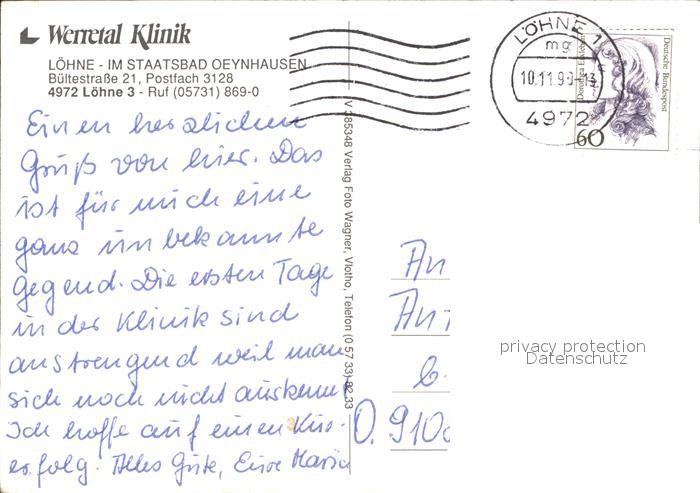 Werretal Klinik
LÖHNE - IM STAATSBAD OEYNHAUSEN
Bültestraße 21, Postfach 3128
4972 Löhne 3 - Ruf (05731) 869-0
Einen herzlichen
Gruß von hier. Das
ist für mich eine
ganz unbekannte
Gegend. Die ersten Tage
in der Klinik sind
anstrengend weil man
sich noch nicht auskennt
Ich hoffe auf einen Kur-
erfolg. Alles Gute, Eure Maria
V 385348 Verlag Foto Wagner, Vlotho, Telefon (0 57 33) 82 33
LÖHNE 1
mg
10.11.90-13
4972
Deutsche Bundespost
60
An
b.
O. 910
privacy protection
Datenschutz